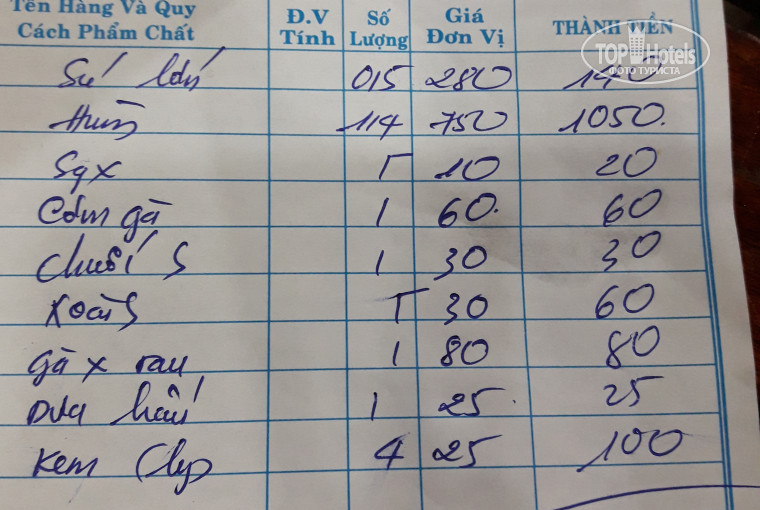 Tên Hàng Và Quy Cách Phẩm Chất Đ.V Tính Số Lượng Giá Đơn Vị THÀNH TIỀN
TOP Hotels
ФОТО ТУРИСТА
015 280 140
114 750 1050
Sqx 10 20
Cơm gà 1 60 60
Chuối S 1 30 30
Xoài S 30 60
Gà x rau 1 80 80
Dưa hấu 1 25 25
Kem 4 25 100